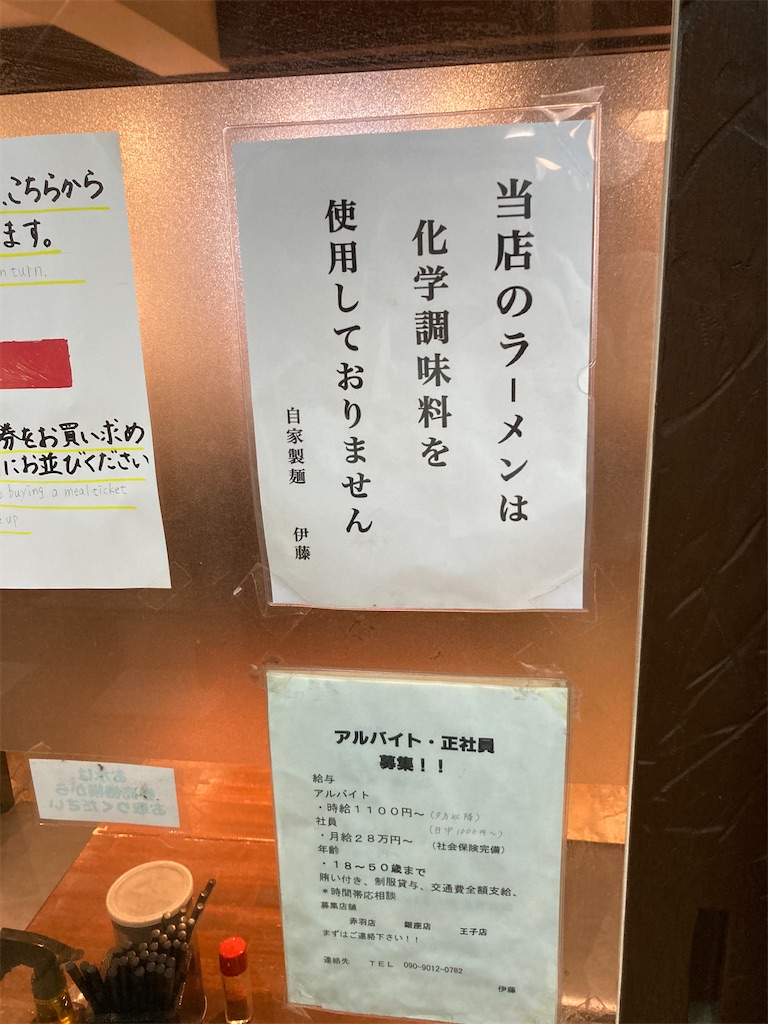 こちらから
ます。
n turn.
券をお買い求め
にお並びください
buying a meal ticket
up.
当店のラーメンは
化学調味料を
使用しておりません
自家製麺 伊藤
アルバイト・正社員
募集！！
給与
アルバイト
・時給１１００円～（夕方以降）
（日中1000円～）
社員
・月給２８万円～ （社会保険完備）
年齢
・１８～５０歳まで
賄い付き、制服貸与、交通費全額支給、
＊時間帯応相談
募集店舗
赤羽店 銀座店 王子店
まずはご連絡下さい！！
連絡先 ＴＥＬ 090-9012-0782
伊藤
お取りください